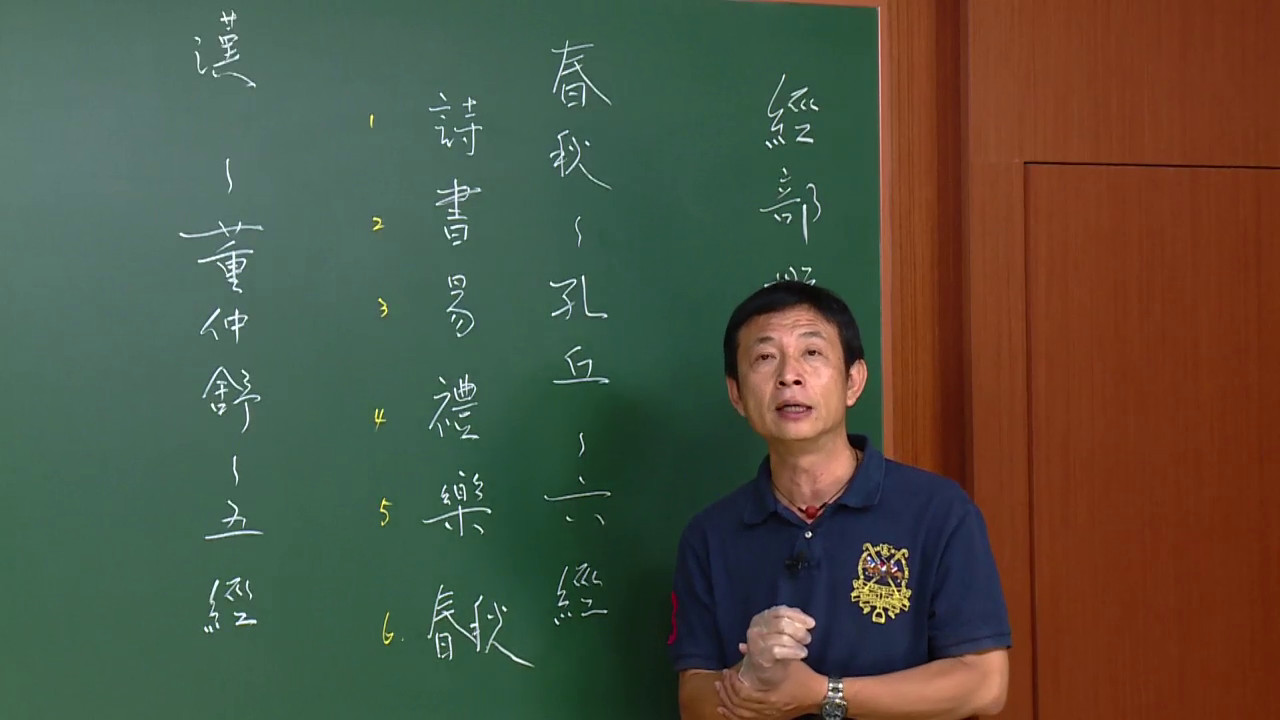 經部
春秋~孔丘~六經
1 詩
2 書
3 易
4 禮
5 樂
6. 春秋
漢~董仲舒~五經